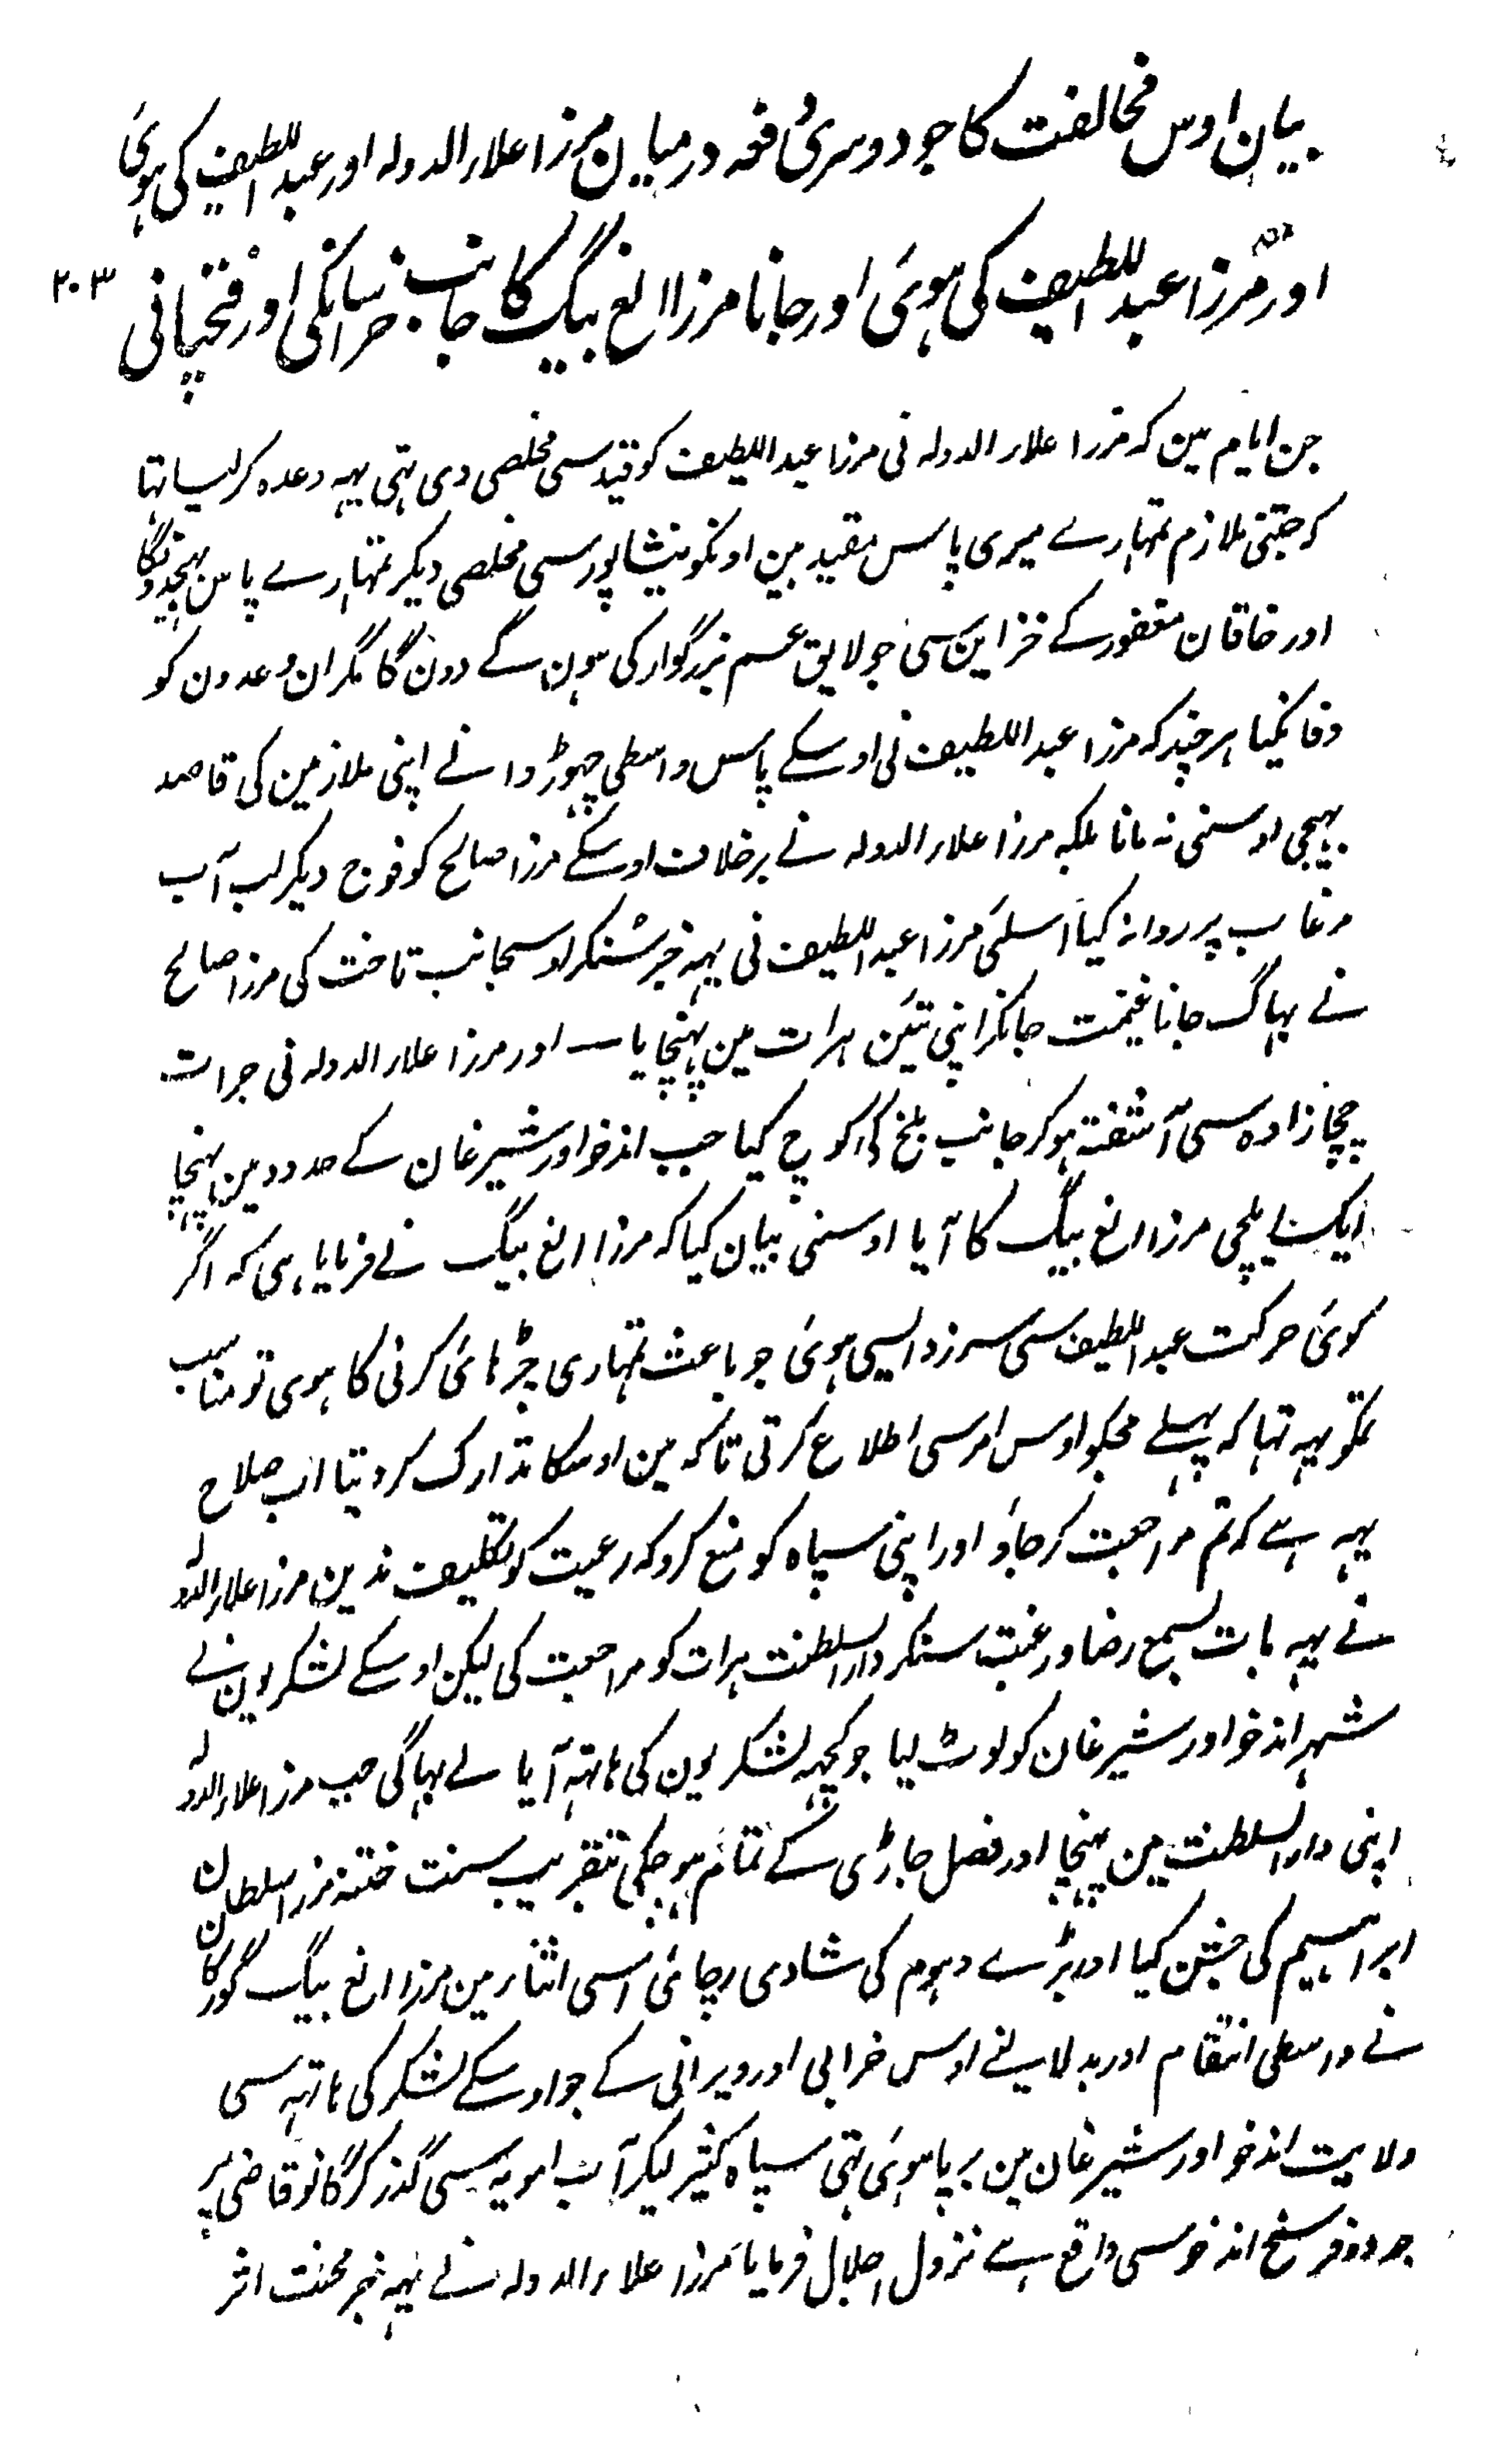 بیان اوس مخالفت کا جو دوسری دفعہ درمیان مرزا علاء الدولہ اور عبد اللطیف کی ہوئی
اور مرزا عبد اللطیف کی ہوئی اور جانا مرزا الغ بیگ کا جانب خراسانکی اور فتحپانی ۲۰۳
جن ایام مین کہ مرزا علاء الدولہ نی مرزا عبد اللطیف کو قید سی مخلصی دی تہی یہہ وعدہ کر لیا تہا
کہ جتنی ملازم تمہارے میری پاس مقید ہین اونکو نیشاپور سی مخلصی دیکر تمہارے پاس بہیجدونگا
اور خاقان مغفور کے خزاین سی جو لایق عم بزرگوار کی ہون گے دون گا مگر ان وعدون کو
وفا نکیا ہر چند کہ مرزا عبد اللطیف نی اوسکے پاس واسطی چہوڑوانے اپنی ملازمین کی قاصد
بہیجی اوسنی نہ مانا بلکہ مرزا علاء الدولہ نے برخلاف اوسکے مرزا صالح کو فوج دیکر لب آب
مرغاب پر روانہ کیا اسلئی مرزا عبد اللطیف نی یہہ خبر سُنکر اوسجانب تاخت کی مرزا صالح
نے بہاگ جانا غنیمت جانکر اپنی تئین ہرات مین پہنچایا اور مرزا علاء الدولہ نی جرات
چچازادہ سی آشفتہ ہو کر جانب بلخ کی کوچ کیا جب اندخوا ور شیرغان کے حدود مین پہنچا
ایک ایلچی مرزا الغ بیگ کا آیا اوسنی بیان کیا کہ مرزا الغ بیگ نے فرمایا ہی کہ اگر
کوئی حرکت عبد اللطیف سی سرزد ایسی ہوئی جو باعث تمہاری چڑہائی کرنی کا ہوی تو مناسب
تمکو یہہ تہا کہ پہلے مجکو اوس امر سی اطلاع کرتی تاکہ مین اوسکا تدارک کر دیتا اب صلاح
یہہ ہے کہ تم مراجعت کر جاؤ اور اپنی سپاہ کو منع کرو کہ رعیت کو تکلیف ندین مرزا علاء الدولہ
نے یہہ بات بسمع رضا و رغبت سنکر دار السلطنت ہرات کو مراجعت کی لیکن اوسکے لشکریون نے
شہر اندخوا ور شیرغان کو لوٹ لیا جو کچہہ لشکریون کی ہاتہہ آیا لے بہاگی جب مرزا علاء الدولہ
اپنی دار السلطنت مین پہنچا اور فصل جاڑی کے تمام ہو چکی بتقریب سنت ختنہ مرزا سلطان
ابراہیم کی جشن کیا اور بڑے دہوم کی شادی رچائی اسی اثناء مین مرزا الغ بیگ گورکان
نے واسطی انتقام اور بدلا لینے اوس خرابی اور ویرانی کے جو اوسکے لشکر کی ہاتہہ سی
ولایت اندخوا ور شیرغان مین برپا ہوئی تہی سپاہ کثیر لیکر آب امویہ سی گذر کر گانو قاضی پر
جو دو فرسخ اندخو سی واقع ہے نزول اجلال فرمایا مرزا علاء الدولہ نے یہہ خبر محنت اثر